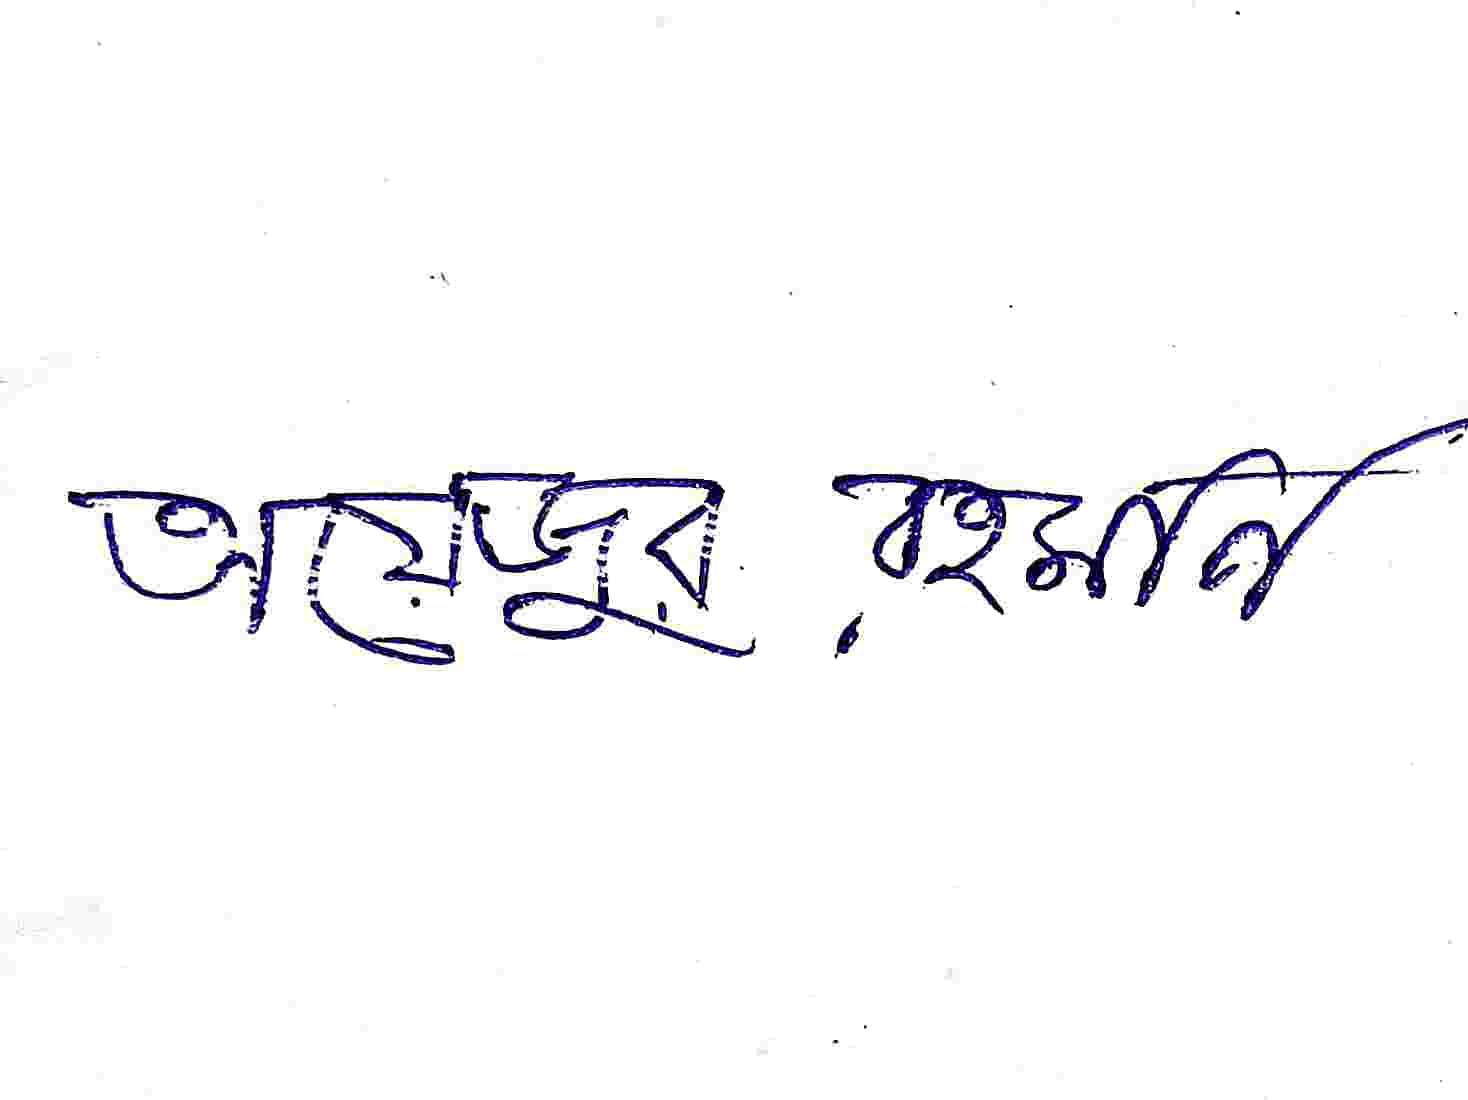 অয়েজুর রহমান